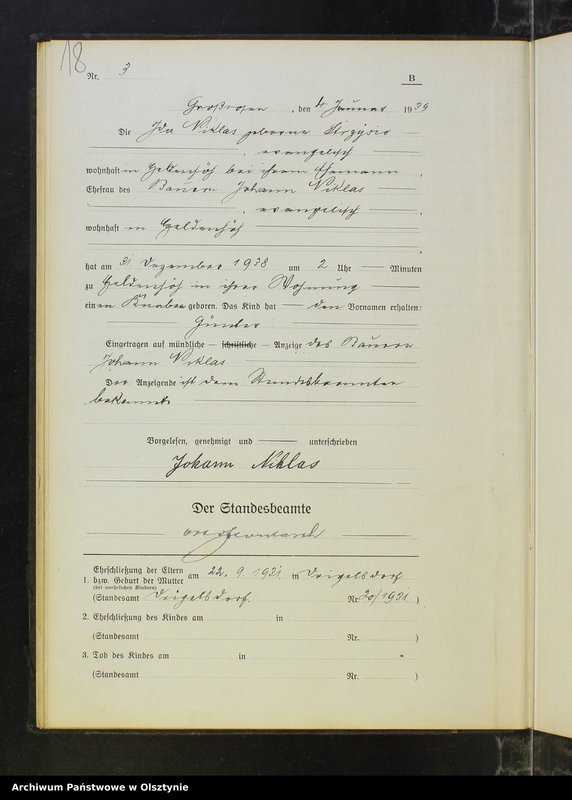 18
Nr. 3
B
Großrosen, den 4. Januar 1939
Die Ida Niklas geborene
evangelisch,
wohnhaft in Geldenhöh bei ihrem Ehemann,
Ehefrau des Bauern Johann Niklas
, evangelisch,
wohnhaft in Geldenhöh
hat am 31. Dezember 1938 um 2 Uhr Minuten
zu Geldenhöh in ihrer Wohnung
einen Knaben geboren. Das Kind hat den Vornamen erhalten:
Günter
Eingetragen auf mündliche – schriftliche – Anzeige des Bauern
Johann Niklas
Der Anzeigende ist dem Standesbeamten
bekannt.
Vorgelesen, genehmigt und unterschrieben
Johann Niklas
Der Standesbeamte
1. Eheschließung der Eltern
bzw. Geburt der Mutter am 22. 9. 1931 in Drigelsdorf
(bei unehelichen Kindern)
(Standesamt Drigelsdorf Nr. 20/1931)
2. Eheschließung des Kindes am in
(Standesamt Nr. )
3. Tod des Kindes am in
(Standesamt Nr. )
Archiwum Państwowe w Olsztynie